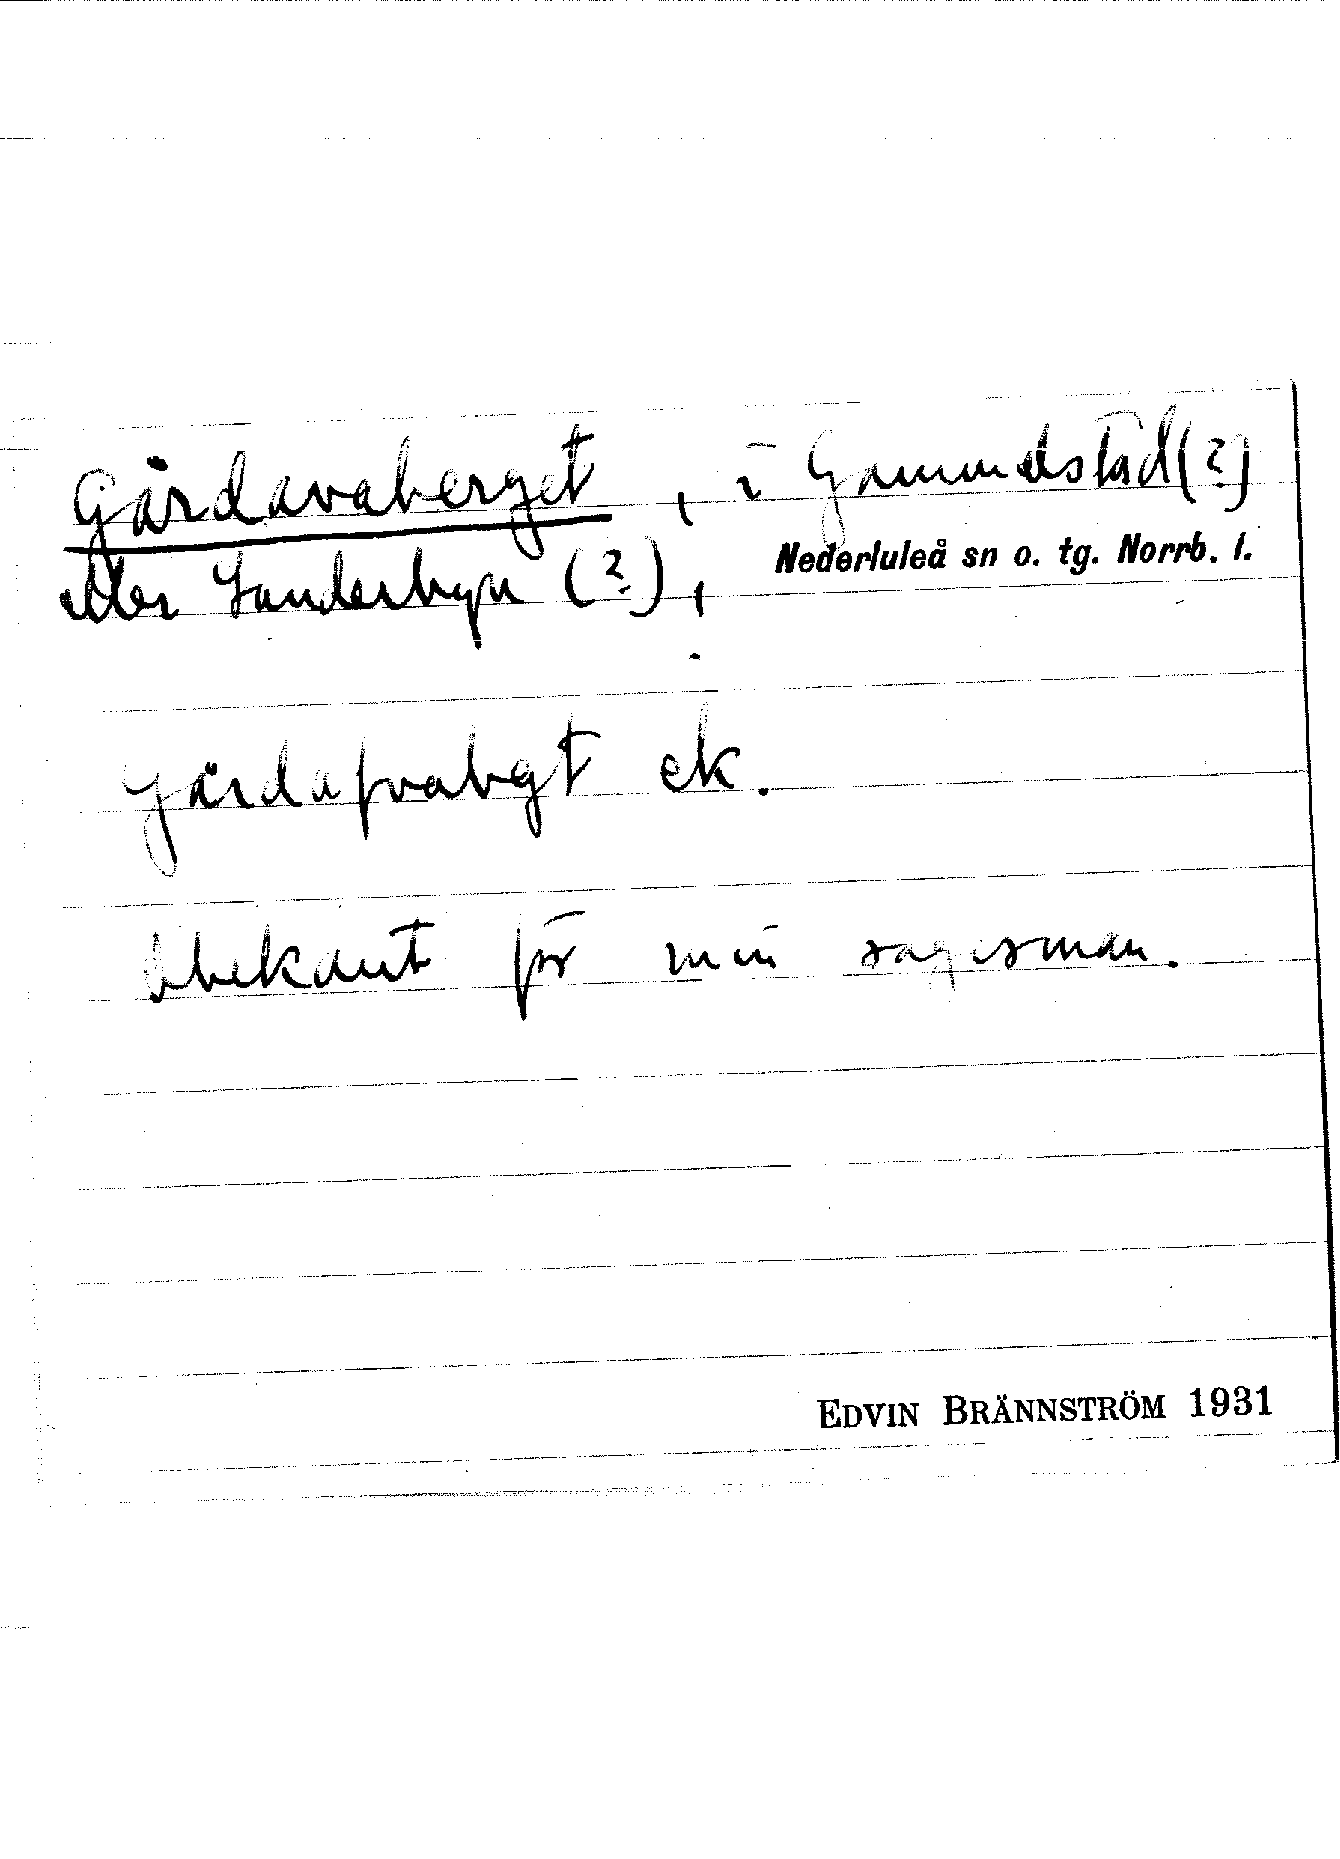 Gärdavaberget, i Gammelstad(?)
Nederluleå sn o. tg. Norrb. l.
eller Sunderbyn (?),
Gärdafvabgt ek.
obekant för min sagesman.
EDVIN BRÄNNSTRÖM 1931